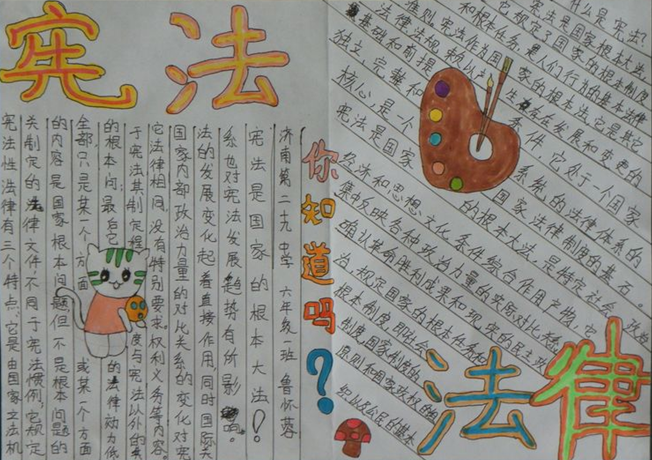 宪法
你知道吗？
济南第二十九中学 六年级一班 鲁怀蓉
宪法是国家的根本大法！
系也对宪法发展趋势有所影响。
法的发展变化起着直接作用，同时国际关
国家内部政治力量的对比关系的变化对宪
它法律相同，没有特别要求，权利义务等内容
于宪法其制定程 度与宪法以外的
的根本问 最 的法律动力低
全部只是某一个方面 或某一个方面
的内容是国家根本问题但不是根本问题的
关制定的法律文件不同于宪法惯例，它规定
宪法性法律有三个特点：它是由国家立法机
什么是宪法：
宪法是国家根本大法，
它规定了国家的根本制度
和根本任务，是人们行为的基本法律
准则。宪法作为国家的根本法，它是其它
法律、法规赖以 生 存在发展和变更的
基础和前提 条件，它处于一个国家
独立、完整和 系统的法律体系的
核心，是一个 国家法律制度的基石。
宪法是国家 的根本大法，是特定社会政治
经济和思想文化条件综合作用产物，它
集中反映各种政治力量的实际对比关系
确认革命胜利成果和现实的民主政
治，规定国家的根本任务和
根本制度，即社会
制度、国家制度的
原则和国家政权的组
织以及公民的基本
法律